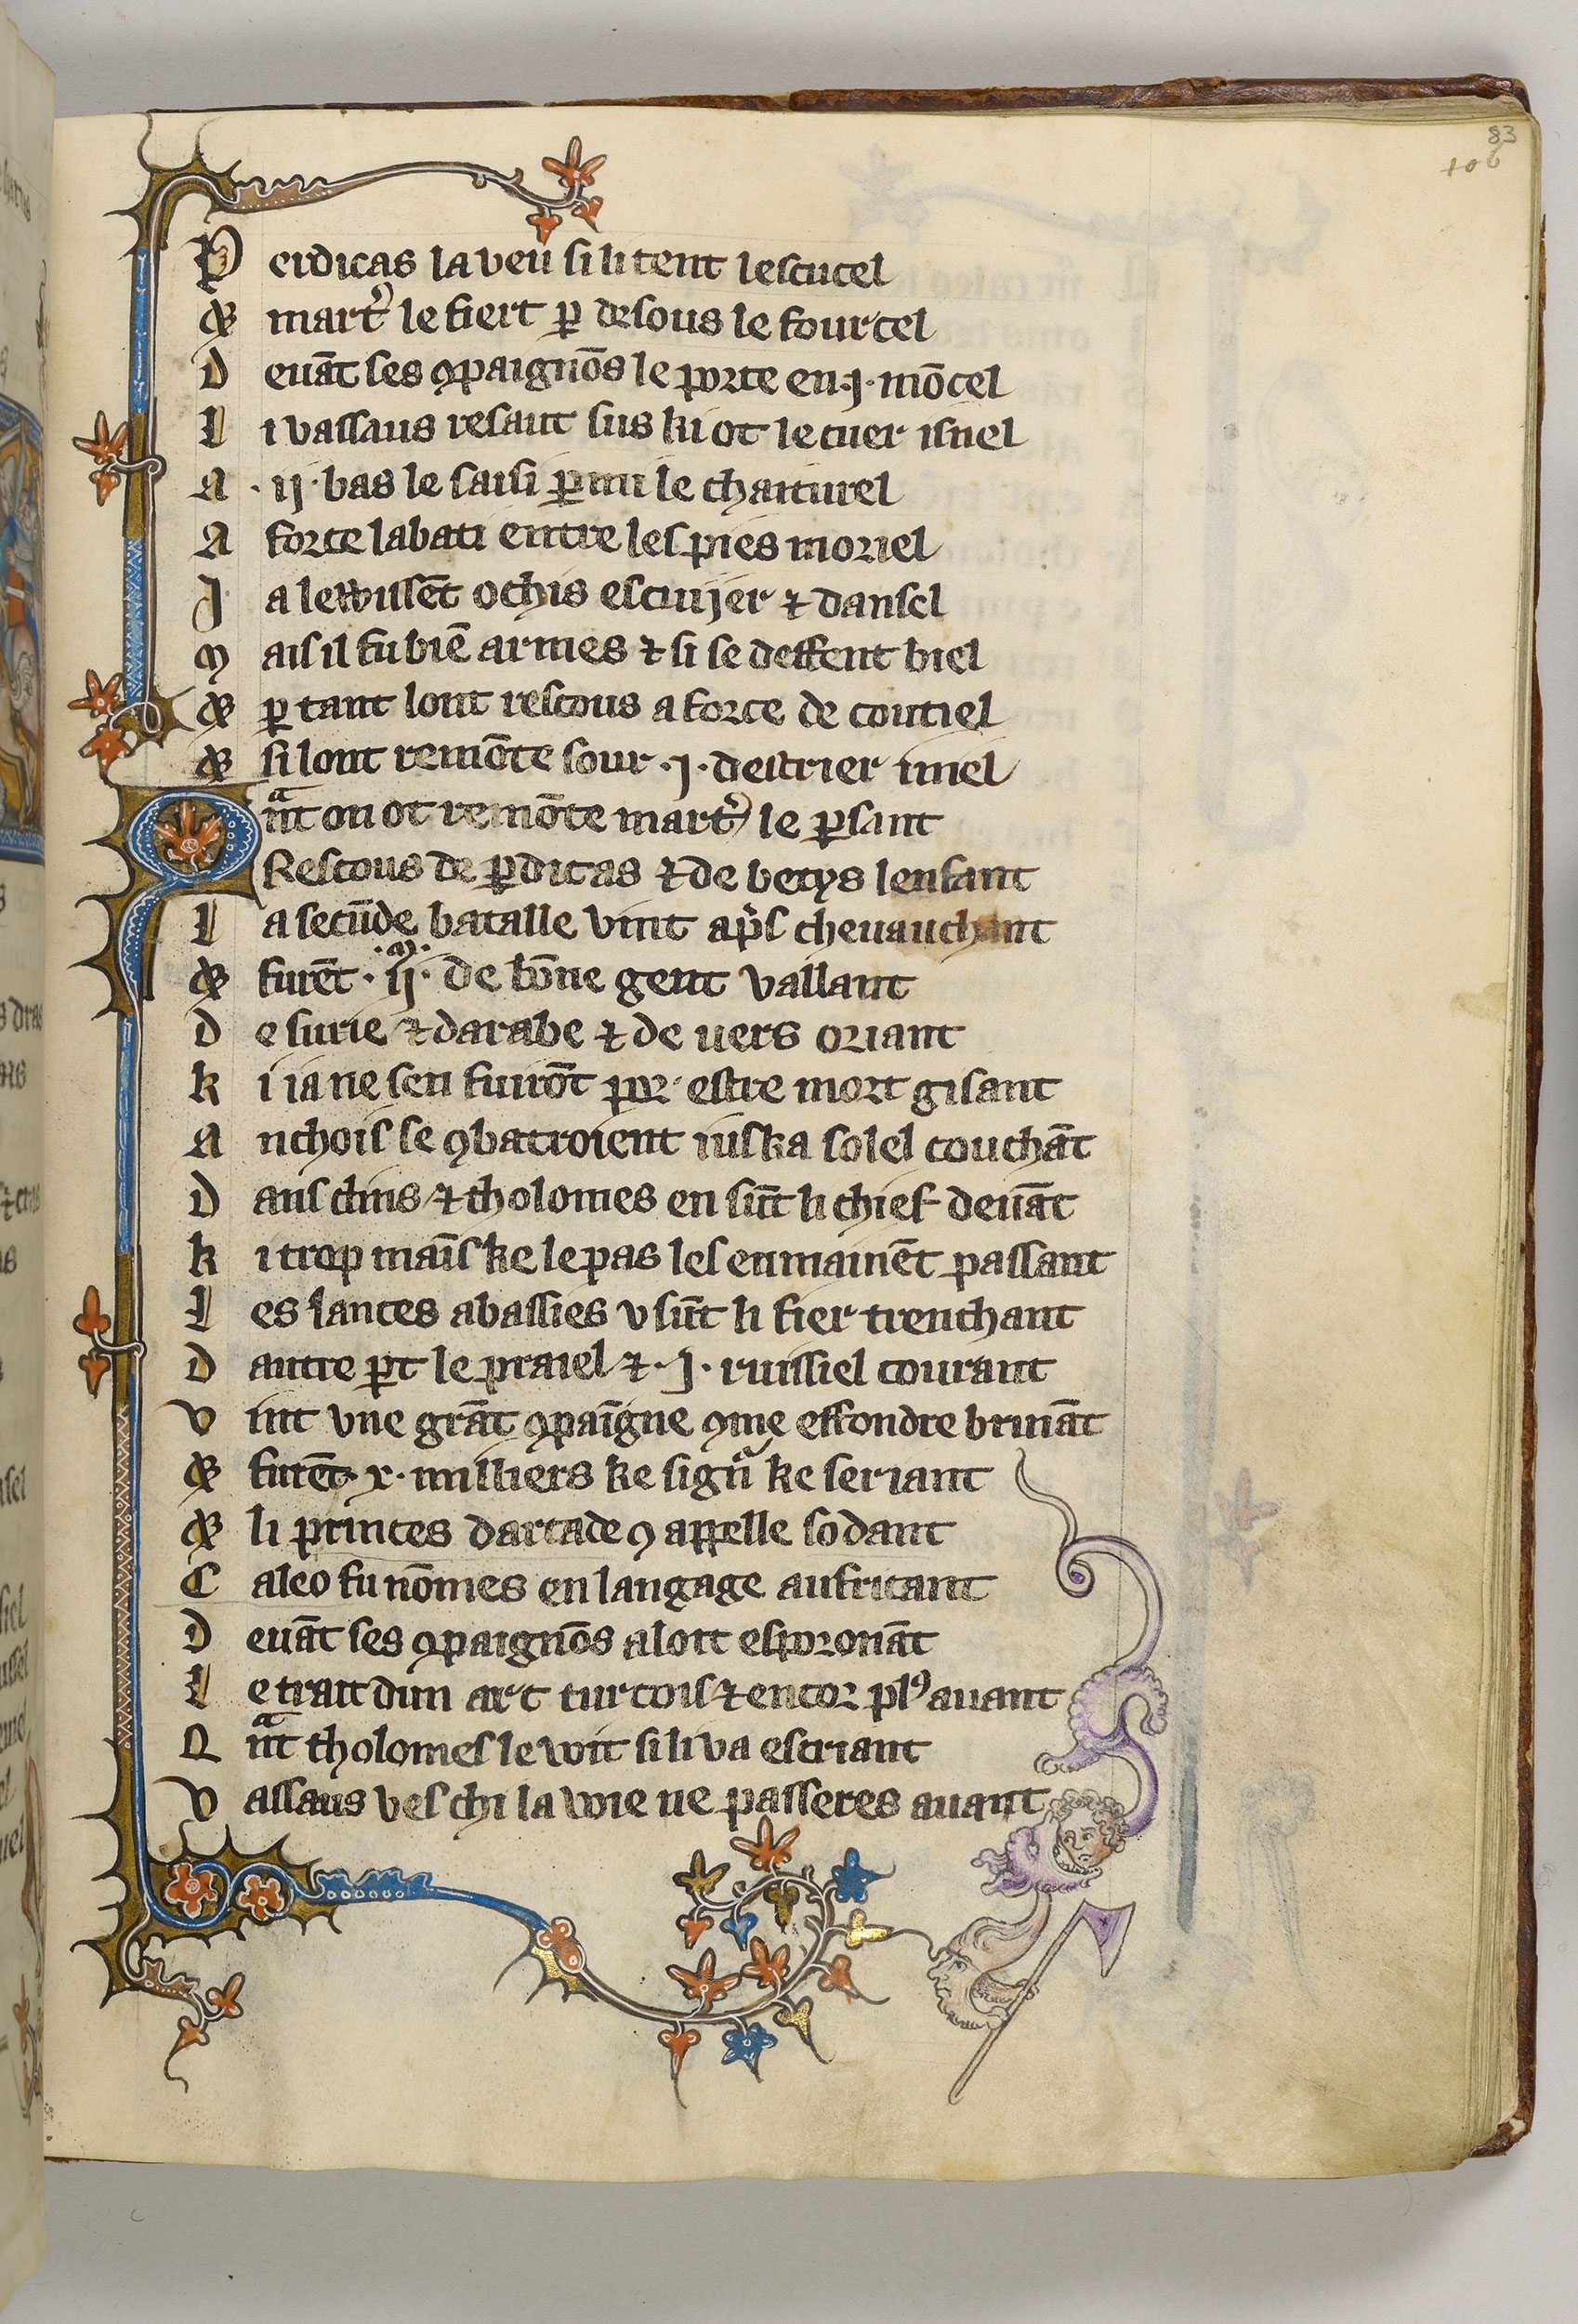 83
106
Perdicas la veu si li tent lescucel
⁊ mart᷒ le fiert ꝑ desous le fourcel
Deuāt ses ꝯpaignōs le porte en .j. mōcel
Li vassaus resaut sus ki ot le cuer isnel
A .ij. bas le saisi ꝑmi le chaiturel
A force labati entre les pies moriel
Ja lewissēt ochis escuijer ⁊ dansel
Mais il fu biē armes ⁊ si se deffent biel
⁊ ꝑ tant lont rescous a force de coutiel
⁊ si lont remōte sour .j. destrier inel
Qᵃnt on ot remōte mart᷒ le ꝑsant
Rescous de ꝑdicas ⁊ de betys lenfant
La secūde batalle vint ap̄s cheuauchant
⁊ furēt .ij.ᵐ de bōne gent vallant
De surie ⁊ darabe ⁊ de uers oriant
Ki ia ne sen fuirōt por estre mort gisant
Anchois se ꝯbatroient iuska solel couchāt
Dans clins ⁊ tholomes en sūt li chief deuāt
Ki trop maīs ke le pas les enmainēt passant
Les lances abassies v sūt li fier trenchant
Dautre ꝑt le praiel ⁊ .j. ruissiel courant
Vint vne grāt ꝯpaīgne ꝯme effondre bruiāt
⁊ furēt .x. milliers ke signᵃ ke seriant
⁊ li princes darcade ꝯ appelle sodant
Caleo fu nōmes en langage aufricant
Deuāt ses ꝯpaignōs aloit esporonāt
Le trait dun arc turcois ⁊ encor plꝰ auant
Qᵃnt tholomes le voit si li va escriant
Vassaus ves chi la voie ne passeres auant